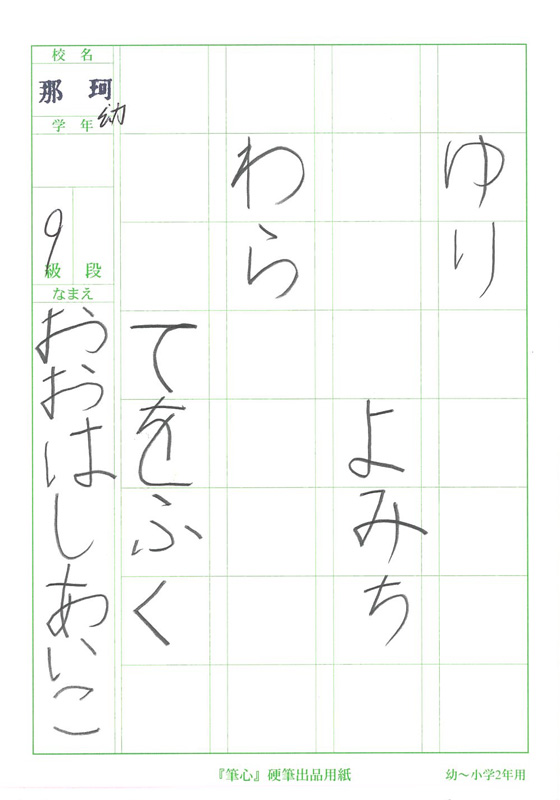 ゆり
よみち
わら
てをふく
校名
那珂
学年
幼
9
級 段
なまえ
おおはしあいこ
『筆心』硬筆出品用紙
幼〜小学2年用